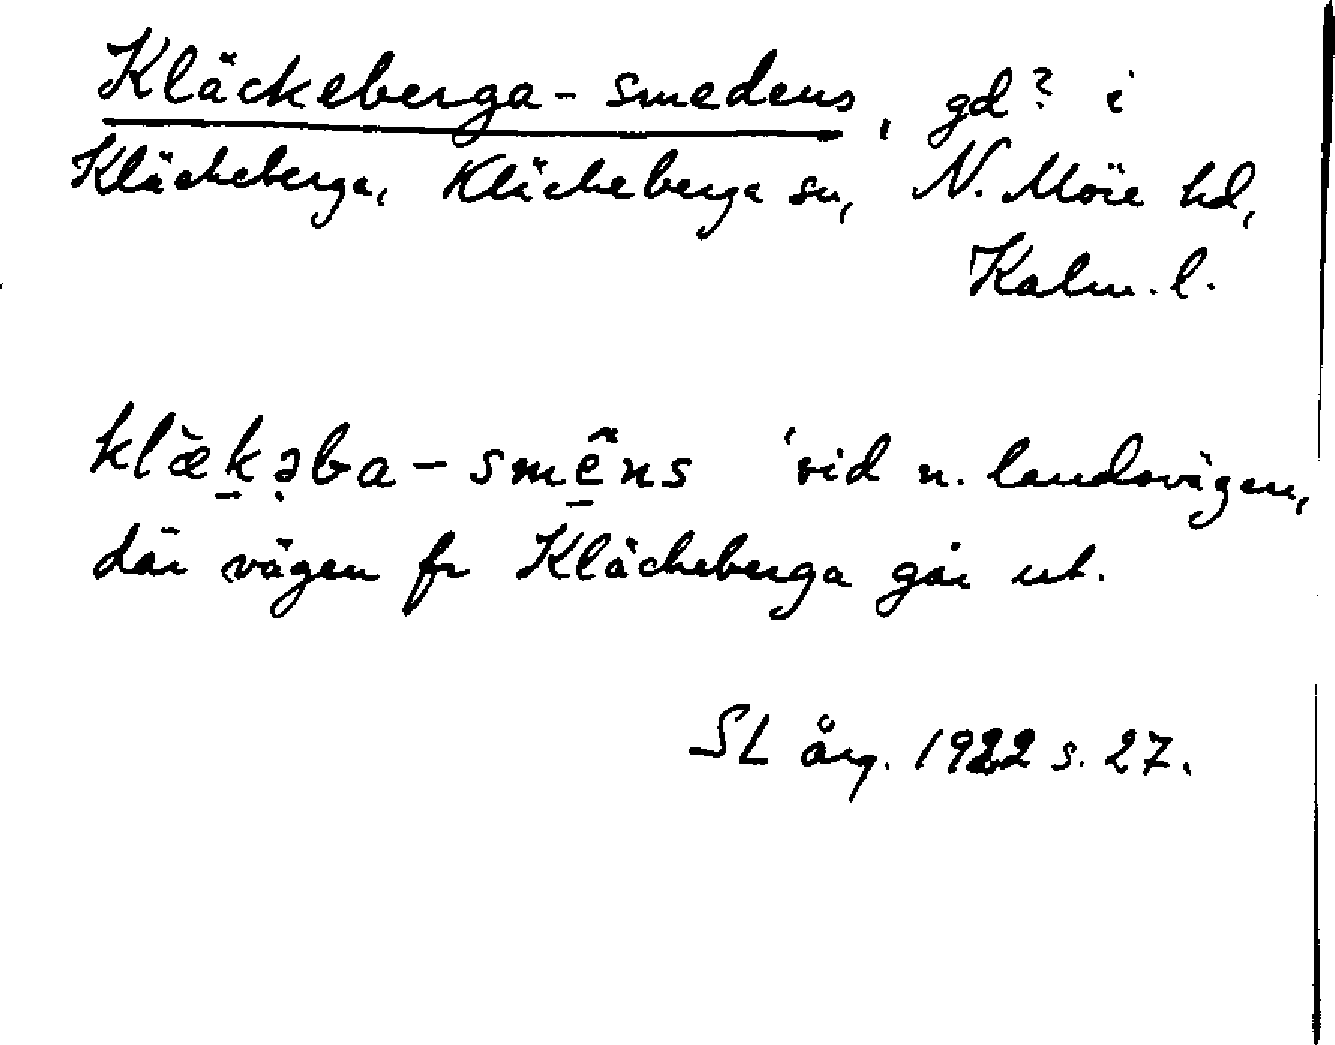 Kläckeberga-smedens, gd? i
Kläckeberga, Kläckeberga sn, N. Möre hd,
Kalm. l.
klæ̀k̠ə̣ba - sme̠͂ns 'vid n. landsvägen,
där vägen fr Kläckeberga går ut.
SL årg. 1922 s. 27.